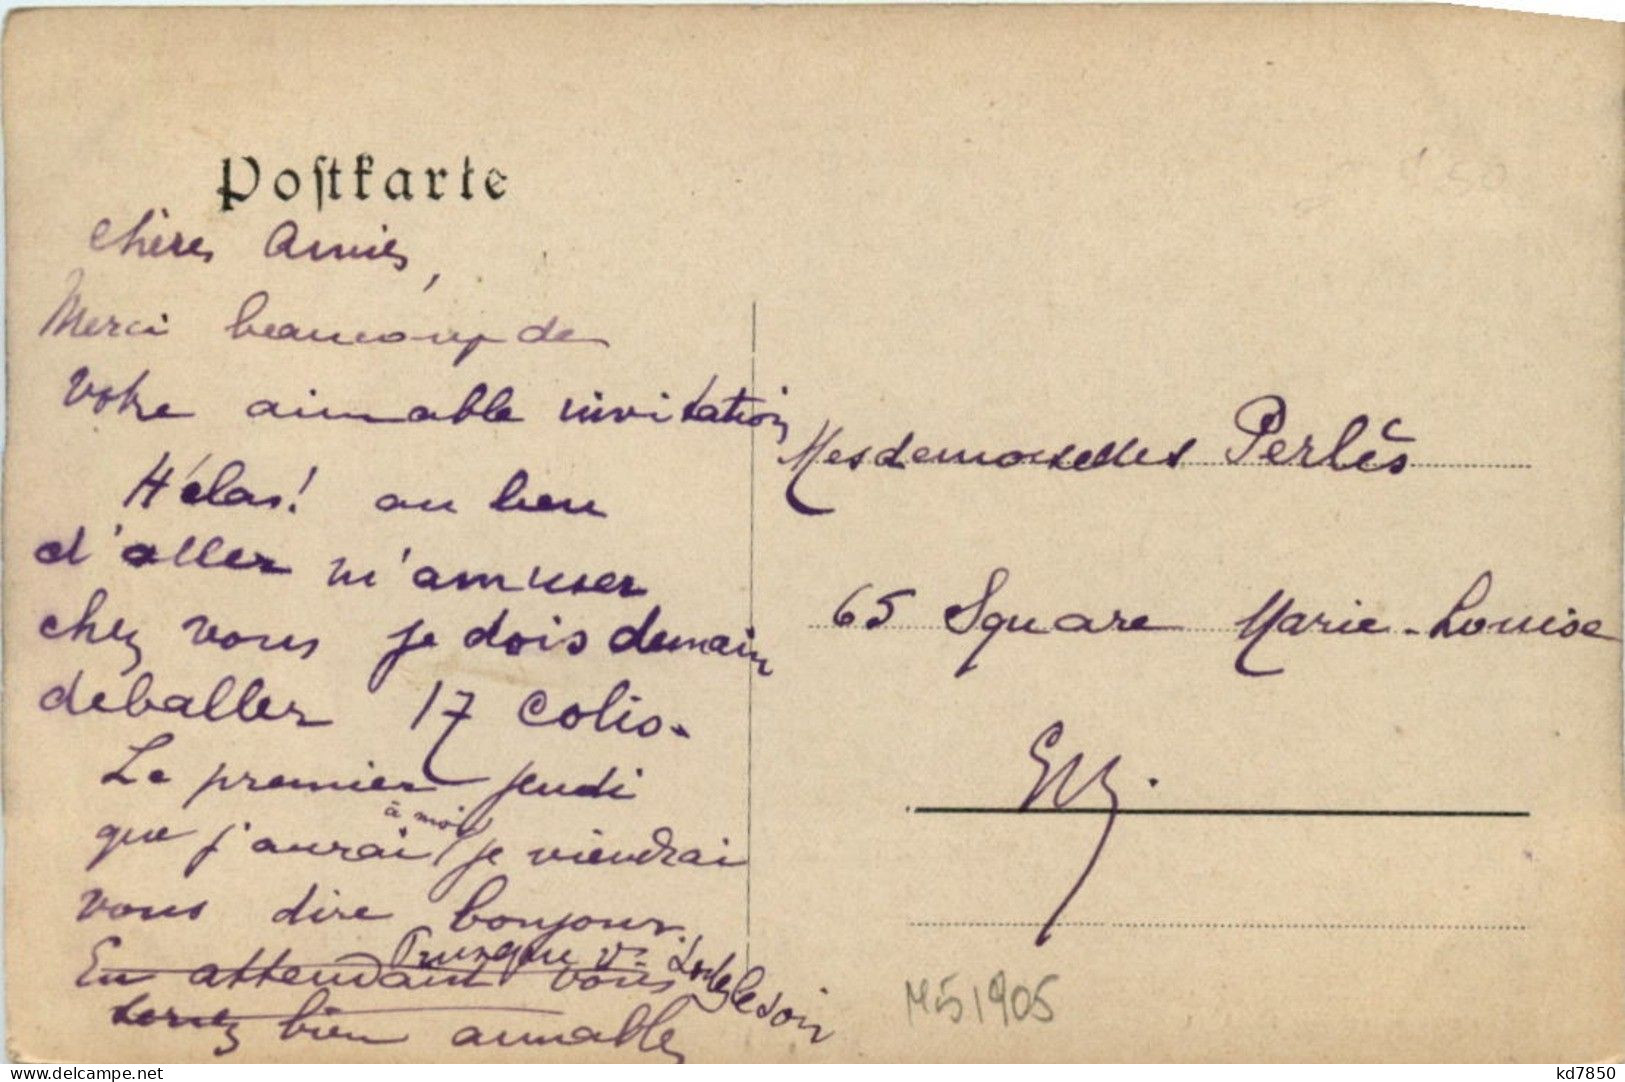 Postkarte
Chères Amies,
Merci beaucoup de
votre aimable invitation
Hélas! au lieu
d'aller m'amuser
chez vous je dois demain
déballer 17 colis.
Le premier jeudi
que j'aurai à moi je viendrai
vous dire bonjour.
Puisque vs sortez le soir
En attendant vous
serez bien aimables
Mesdemoiselles Perlès
65 Square Marie-Louise
E/V.
M51905
4.50
delcampe.net
kd7850